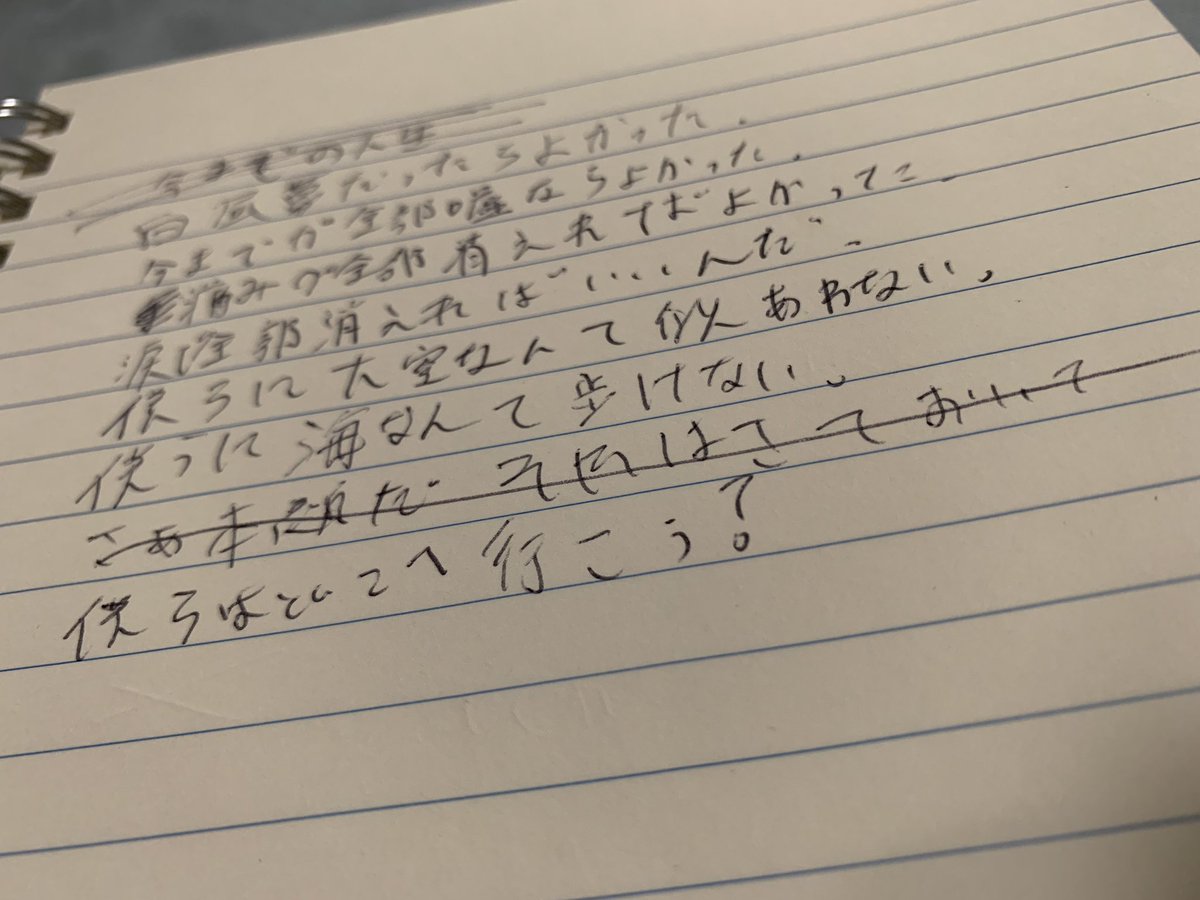 今までの人生
白昼夢だったらよかった.
今までが全部嘘ならよかった.
痛みが全部消えてばよかった.
涙は全部消えればいいんだ.
僕らに大空なんて似あわない.
僕らに海なんて歩けない.
さあ本題だ それはさておいて
僕らはどこへ行こう?